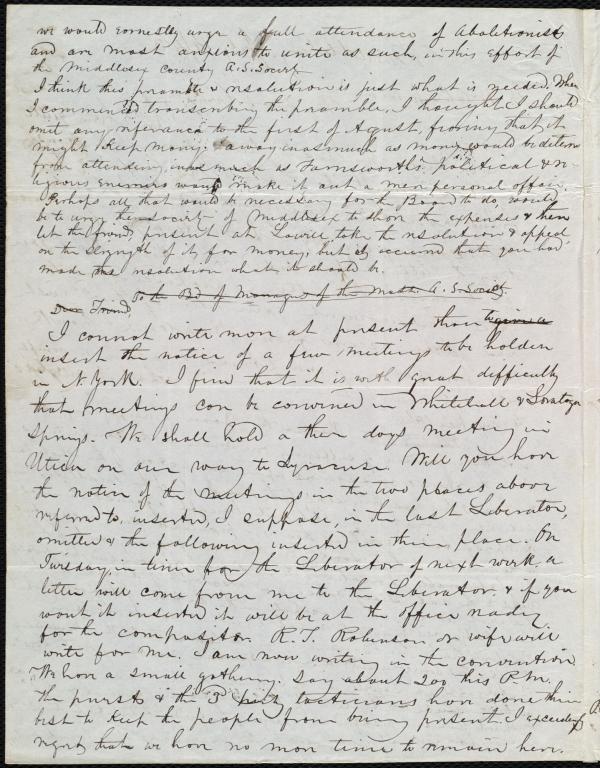 we would earnestly urge a full attendance of Abolitionists
and are most anxious to unite as such, in this effort of
the Middlesex County A.S. Society
I think this preamble & resolution is just what is needed. When
I commenced transcribing the preamble, I thought I should
omit any referance to the first of August, fearing that it
might keep many away inasmuch as money would be
from attending, in as much as Farnsworth's political & re-
ligious enemies would make it out a mere personal affair.
Perhaps all that would be necessary for the Board to do, would
be to urge the society of Middlesex to share the expenses & then
let the friends present at Lowell take the resolution & appeal
on the strength of it, for money, but it occured that you had
made the resolution what it should be.
To the Bd of Managers of the Mass A. S. Society.
Dear Friend
I cannot write more at present than to give a
insert the notice of a few meetings to be holden
in N. York. I find that it is with great difficulty
that meetings can be convened in Whitehall & Saratoga
Springs. We shall hold a three days meeting in
Utica on our way to Syracuse. Will you have
the notice of the meetings in the two places above
referred to, inserted, I suppose, in the last Liberator,
omitted & the following inserted in their place. On
Tuesday, in time for the Liberator of next week, a
letter will come from me to the Liberator, & if you
want it inserted it will be at the office ready
for the compositor. R. T. Robinson or wife will
write for me. I am now writing in the convention
We have a small gathering. Say about 200 this P.M.
The priests & the 3d tacticians have done their
best to keep the people from being present. I exceedingly
regret that we have no more time to remain here.